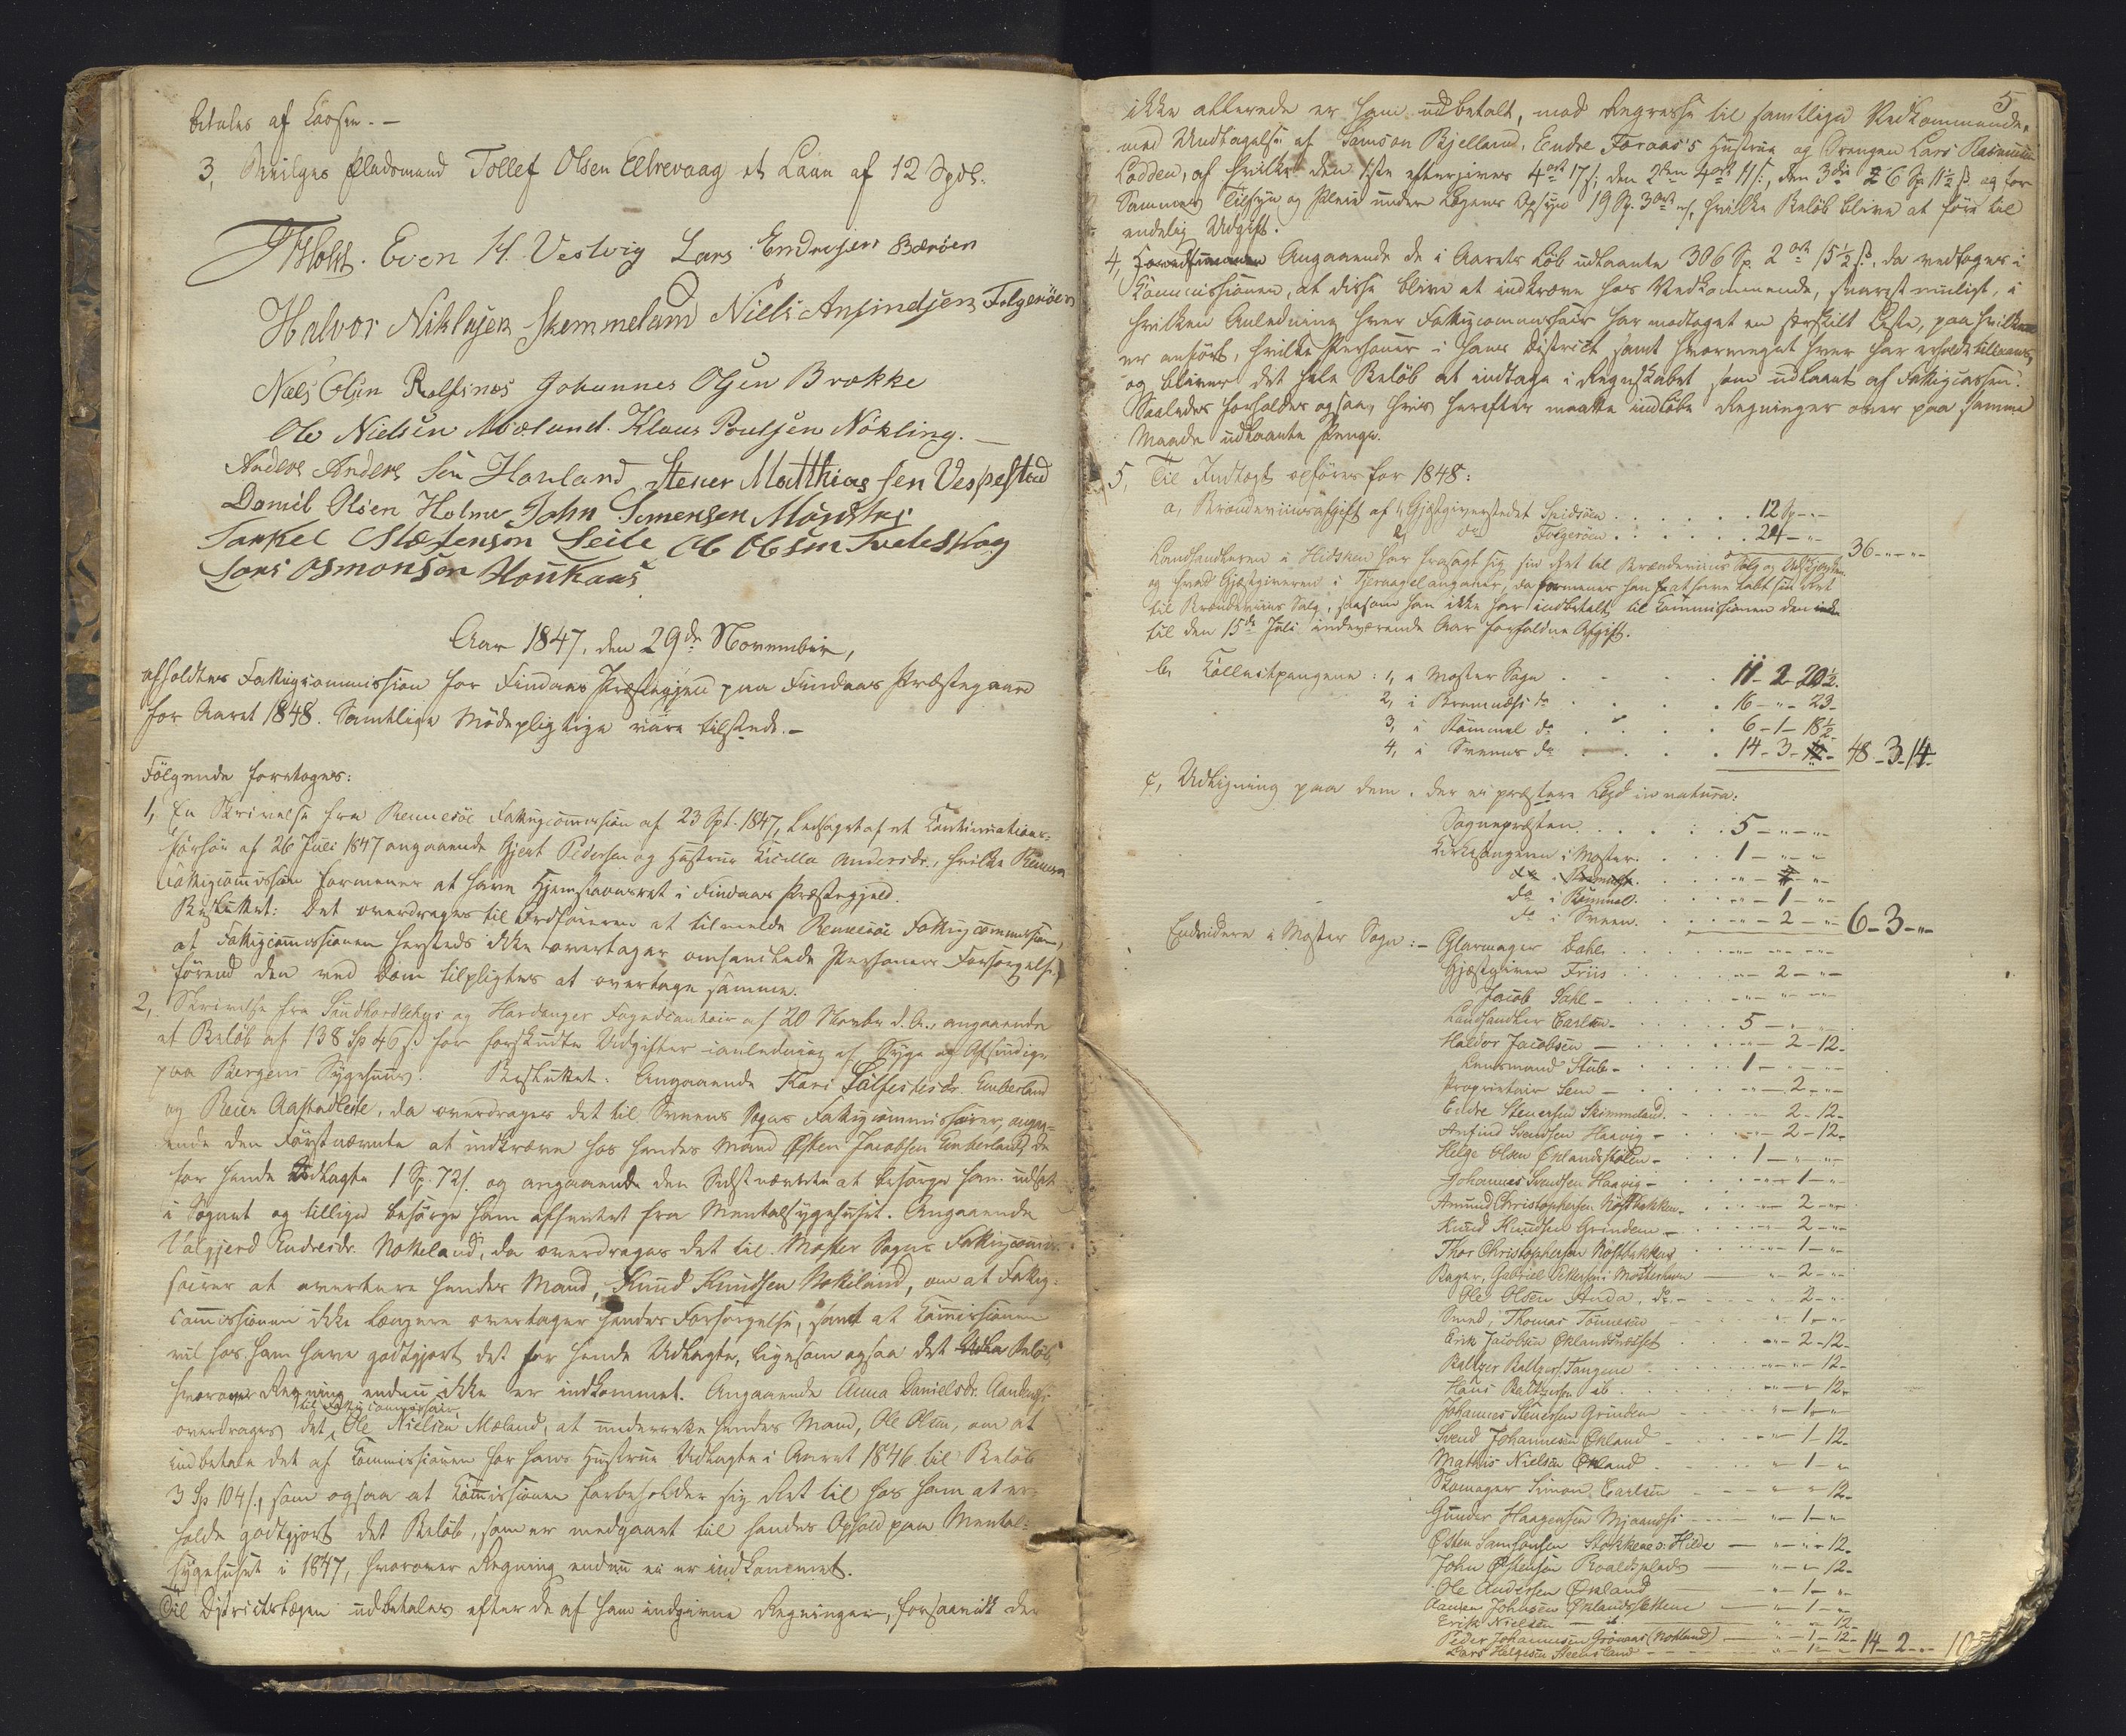 betales af Kassen. —
3, Bevilges Pladsmand Tollef Olsen Elvevaag et Laan af 12 Spdl.
Even H. Vestvig Lars Endresen Børöen
Halvor Niklasen Skemmeland Niels Anfindsen Folgeröen
Niels Olsen Rolfsnes Johannes Olsen Brække
Ole Nielsen Mæland. Klaus Poulsen Nökling. —
Anders Anders Sen Hovland Stener Matthias sen Vespestad
Daniel Olsen Holme John Simensen Mögster
Torkel Steffenson Leite Ole Olsen Tveteskog
Lars Osmonson Houkaas
Aar 1847, den 29de November,
afholdtes Fattigcommission for Findaas Præstegjeld paa Findaas Præstegaard
for Aaret 1848. Samtlige Mödepligtige vare tilstede. —
Fölgende foretoges:
1, En Skrivelse fra Rennesöe Fattigcommission af 23 Spt. 1847, ledsaget af et Continuations-
forhör af 26 Juli 1847 angaaende Gjert Pedersen og Hustrue Andersdr., hvilke Rennesö
Fattigcommission formener at have Hjemstavnsret i Findaas Præstegjeld.
Besluttet: Det overdrages til Ordföreren at tilmelde Rennesöe Fattigcommission,
at Fattigcommissionen hersteds ikke overtager omhandlede Personers Forsörgelse,
förend den ved Dom tilpligtes at overtage samme.
2, Skrivelse fra Sundhordlehns og Hardanger Fogedcontoir af 20 Novbr d. A., angaaende
et Belöb af 138 Sp 46 s. for forskudte Udgifter i anledning af Syge og Afsindige
paa Bergens Sygehuus. Besluttet: Angaaende Kari Salfestesdr. Emberland
og Reier Aastadleite, da overdrages det til Sveens Sogns Fattigcommissairer, angaa-
ende den Förstnævnte at indkræve hos hendes Mand Østen Jacobsen Emberland, de
for hende Udlagte 1 Sp. 72 s. og angaaende den Sidstnævnte at besörge ham udsat
i Sognet og tillige besörge ham afhentet fra Mentalsygehuset. Angaaende
Valgjerd Endresdr. Nokeland, da overdrages det til Moster Sogns Fattigcommis-
sairer at overtyde hendes Mand, Knud Knudsen Nokeland, om at Fattig-
commissionen ikke længere overtager hendes Forsörgelse, samt at Commissionen
vil hos ham have godtgjort det for hende Udlagte, ligesom ogsaa det Belöb
hvorover Regning endnu ikke er indkommet. Angaaende Anna Danielsdr.
til Fattigcommissair
overdrages det Ole Nielsen Mæland, at underrette hendes Mand, Ole Olsen, om at
indbetale det af Commissionen for hans Hustrue Udlagte i Aaret 1846 til Belöb
3 Sp 104 s., som ogsaa at Commissionen forbeholder sig Ret til hos ham at er-
holde godtgjort det Belöb, som er medgaaet til hendes Ophold paa Mental-
sygehuset i 1847, hvorover Regning endnu ei er indkommet.
Til Districtslægen udbetales efter de af ham indgivne Regninger, forsaavidt der
5
ikke allerede er ham udbetalt, med Regresse til samtlige Vedkommende,
med Undtagelse af Samson Bjelland, Endre Foraas's Hustrue og Drengen Lars Rasmussen
Lodden, af hvilke den 1ste eftergives 4 ort 17 s., den 2den 4 ort 11 s., den 3die 26 Sp 11½ s. og for
Sammes Tilsyn og Pleie under Lægens Opsyn 19 Sp. 3 ort, hvilke Belöb blive at före til
endelig Udgift.
4, Angaaende de i Aarets Löb udlaante 306 Sp. 2 ort 15½ s., da vedtoges i
Commissionen, at disse blive at indkræve hos Vedkommende, snarest muligt, i
hvilken Anledning hver Fattigcommissair har modtaget en særskilt Liste, paa hvilken
er anfört, hvilke Personer i hans District samt hvormeget hver har erholdt tillaans,
og bliver det hele Belöb at indtage i Regnskabet som udlaant af Fattigcassen.
Saaledes forholdes ogsaa, hvis herefter maatte indlöbe Regninger over paa samme
Maade udlaante Penge.
5, Til Indtægt opföres for 1848:
a, Brændeviinsafgift af 1, Gjæstgiverstedet Spidsöen . . . 12 Sp - " -
2, do Folgeröen . . . . 24 - " - 36 - " - " -
Landhandleren i Hidsken har frasagt sig sin Ret til Brændeviins Salg og
og hvad Gjæstgiveren i Tjernagel angaaer, da formenes han at have tabt sin Ret
til Brændeviins Salg, saasom han ikke har indbetalt til Commissionen den
til den 15de Juli indeværende Aar forfaldne Afgift.
b, Tollectpengene: 1, i Moster Sogn . . . 11 - 2 - 20½.
2, i Bremnæs do . . . 16 - " - 23 -
3, i Römmel do . . . 6 - 1 - 18½
4, i Sveens do . . . 14 - 3 - " - 48 - 3 - 14.
c, Udligning paa dem, der ei præstere Lægd in natura:
Sognepræsten . . . . . 5 - " - "
Kirkesangeren i Moster . . . 1 - " - "
do i Bremnæs . . . . " - " - "
do i Römmel . . . . " - 1 - "
do i Sveen . . . . " - 2 - " 6 - 3 - "
Endvidere i Moster Sogn: - Glarmager Dahl . . . " - " - "
Gjæstgiver Friis . . . . " - 2 - "
Jacob Dahl - . . . . " - " - "
Landhandler Carlsen - . . . . 5 - " - "
Haldor Jacobsen - . . . . " - 2 - 12 -
Lensmand Stub - . . . . 1 - " - "
Proprietair Sem - . . . . " - 2 - "
Endre Stenersen Skimmeland. . . . " - 2 - 12 -
Anfind Svendsen Haavig - . . . " - 2 - 12 -
Helge Olsen Øklandsstölen - . . . 1 - " - "
Johannes Svendsen Haavig - . . . " - 1 - "
Amund Christophersen Nöstbakken - . . . " - 2 - "
Knud Knudsen Grindem - . . . " - 2 - "
Thor Christophersen Nöstbakken . . . " - 1 - "
Bager, Gabriel Pettersen i Mosterhavn — " - 2 - "
Ole Olsen Anda, do - . . . " - 2 - "
Smed, Thomas Tönnesen . . . " - 1 - "
Erik Jacobsen Øklandsnæset . . . " - 2 - 12 -
Baltzer Baltzers. Tangene . . . " - " - 12 -
Hans Baltzersen ib. . . . " - " - 12 -
Johannes Stenersen Grindem . . . " - 1 - "
Svend Johannesen Økland . . . " - 1 - 12 -
Mathis Nielsen Økland . . . " - 1 - "
Skomager Simon Carlsen . . . " - " - 12 -
Gunder Haagensen Mjaanæs . . . " - 1 - "
Østen Samsonsen Stokkenes: Hilde — " - " - 12 -
John Østensen Roaldsplads — " - " - 12 -
Ole Andersen Økland — " - 1 - "
Johnsen Øklandsslettene — " - 1 - "
Erik Nielsen — ib. " - " - 12 -
Peder Johannesen Grönaas (Nokland) — " - 1 - 12 -
Lars Helgesen Steensland — " - 1 - " 14 - 2 - " -